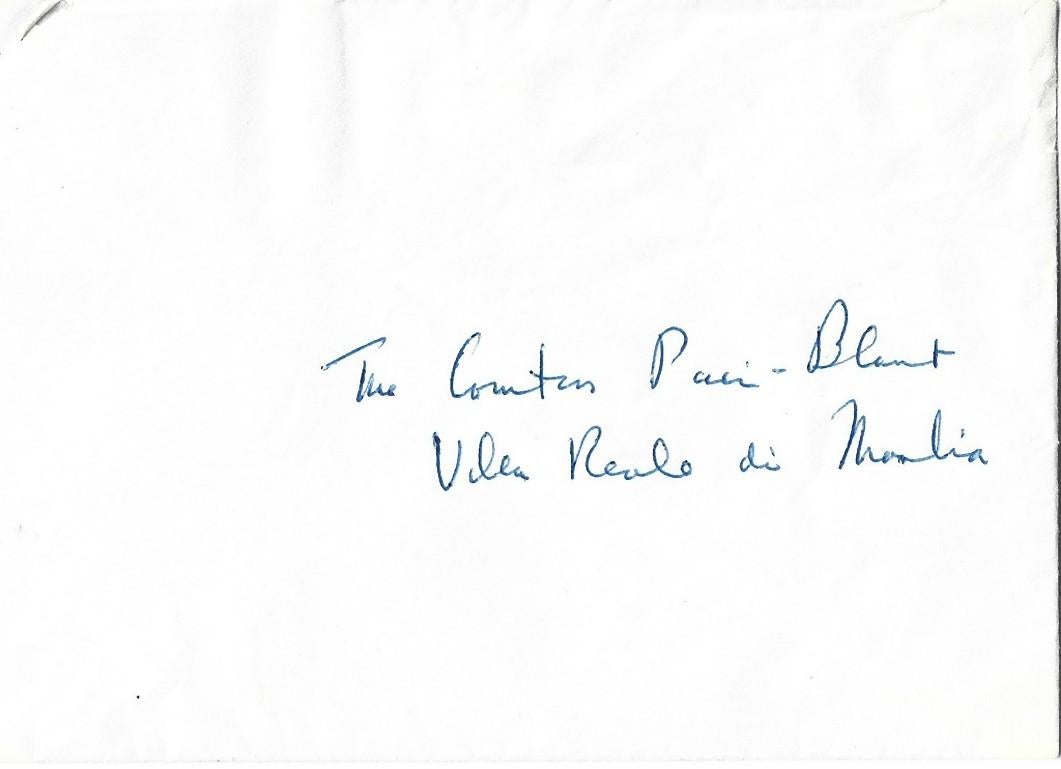 The Comtess Pecci-Blunt
Villa Reale di Marlia